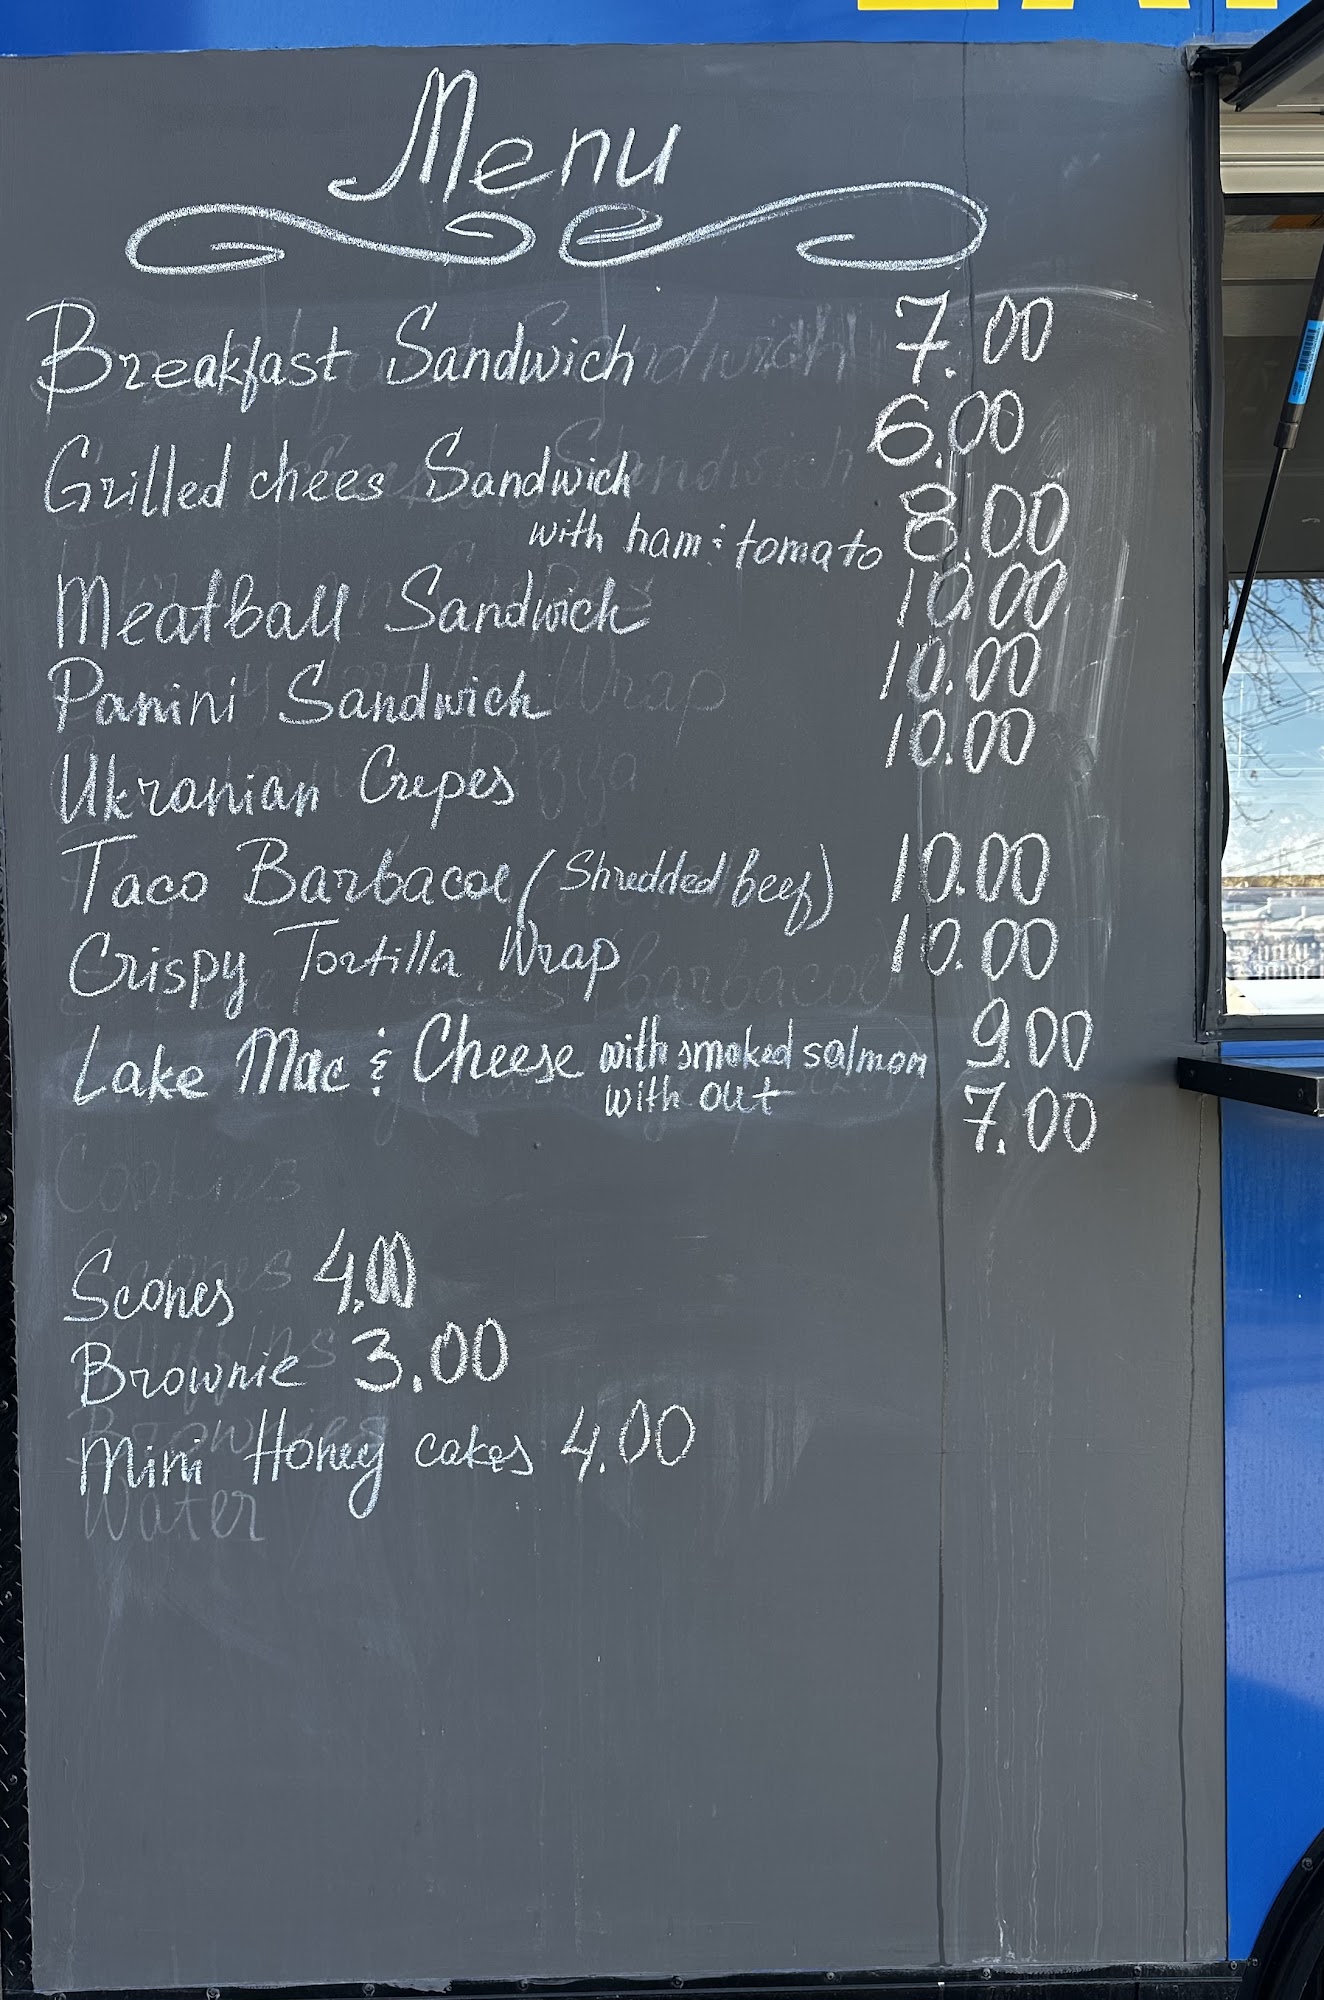 Menu
Breakfast Sandwich 7.00
Grilled chees Sandwich 6.00
with ham & tomato 8.00
Meatball Sandwich 10.00
Panini Sandwich 10.00
Ukranian Crepes 10.00
Taco Barbacoe (Shredded beef) 10.00
Crispy Tortilla Wrap 10.00
Lake Mac & Cheese with smoked salmon 9.00
with out 7.00
Cookies
Scones 4.00
Brownie 3.00
Mini Honey cakes 4.00
Water